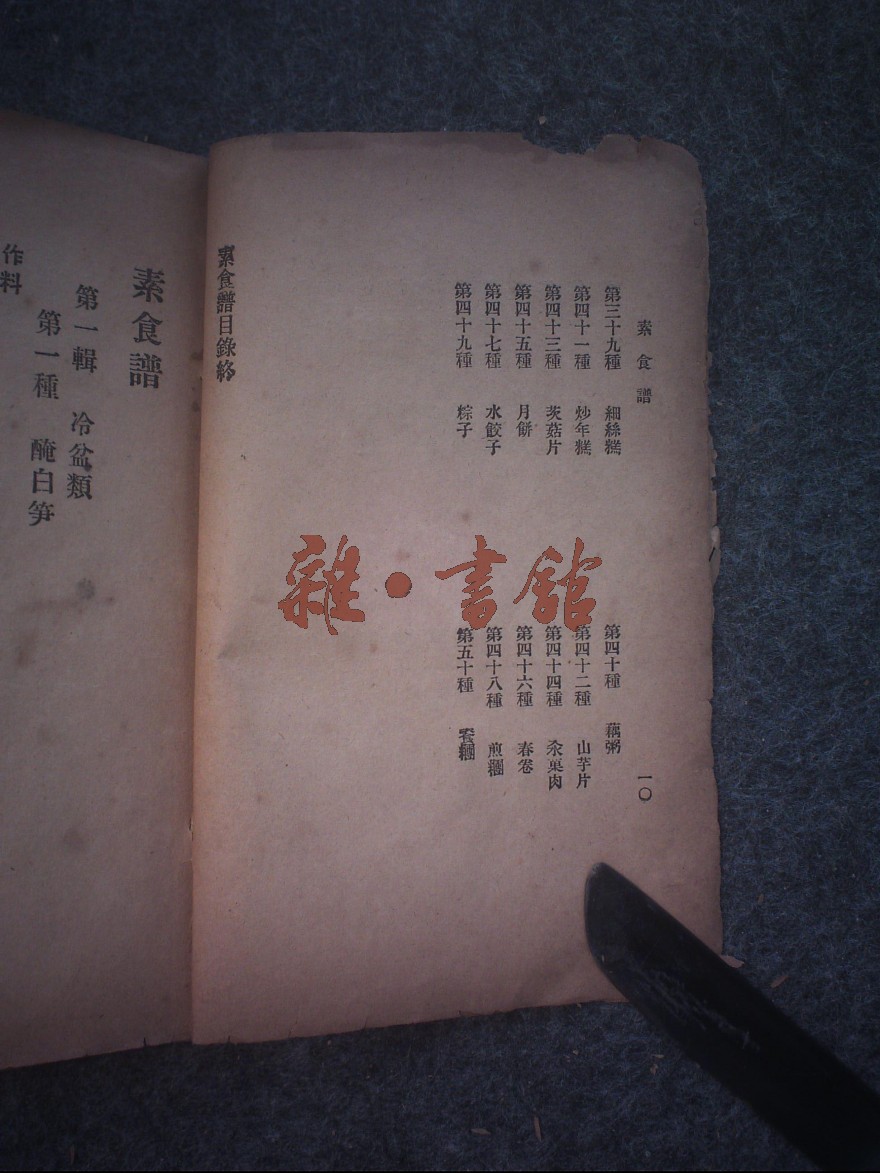 素食譜
一〇
第三十九種 細絲糕
第四十種 藕粥
第四十一種 炒年糕
第四十二種 山芋片
第四十三種 茨菇片
第四十四種 汆菓肉
第四十五種 月餅
第四十六種 春卷
第四十七種 水餃子
第四十八種 煎糰
第四十九種 粽子
第五十種 糰
素食譜目錄終
雜·書館
素食譜
第一輯 冷盆類
第一種 醃白笋
作料